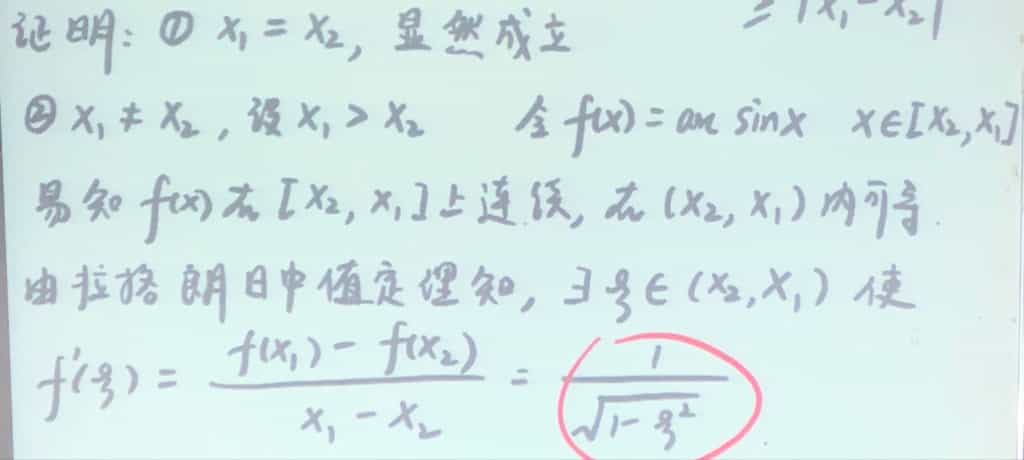 ≥|x₁-x₂|
证明：① x₁ = x₂, 显然成立
② x₁ ≠ x₂, 设 x₁ > x₂ 令 f(x) = arc sinx x∈[x₂,x₁]
易知 f(x) 在 [x₂, x₁] 上连续, 在 (x₂, x₁) 内可导.
由拉格朗日中值定理知, ∃ξ∈(x₂,x₁) 使
f'(ξ) = (f(x₁) - f(x₂))/(x₁ - x₂) = 1/√(1-ξ²)